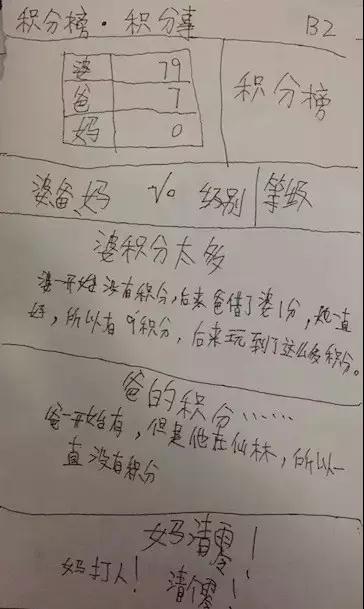 积分榜·积分事 B2
婆 79
爸 7
妈 0
积分榜
婆爸妈 V0 级别 等级
婆积分太多
婆一开始没有积分,后来爸借了婆1分,她一直
好,所以有9积分,后来玩到了这么多积分。
爸的积分……
爸一开始有,但是他在仙林,所以一
直没有积分
妈清零!
妈打人! 清零!